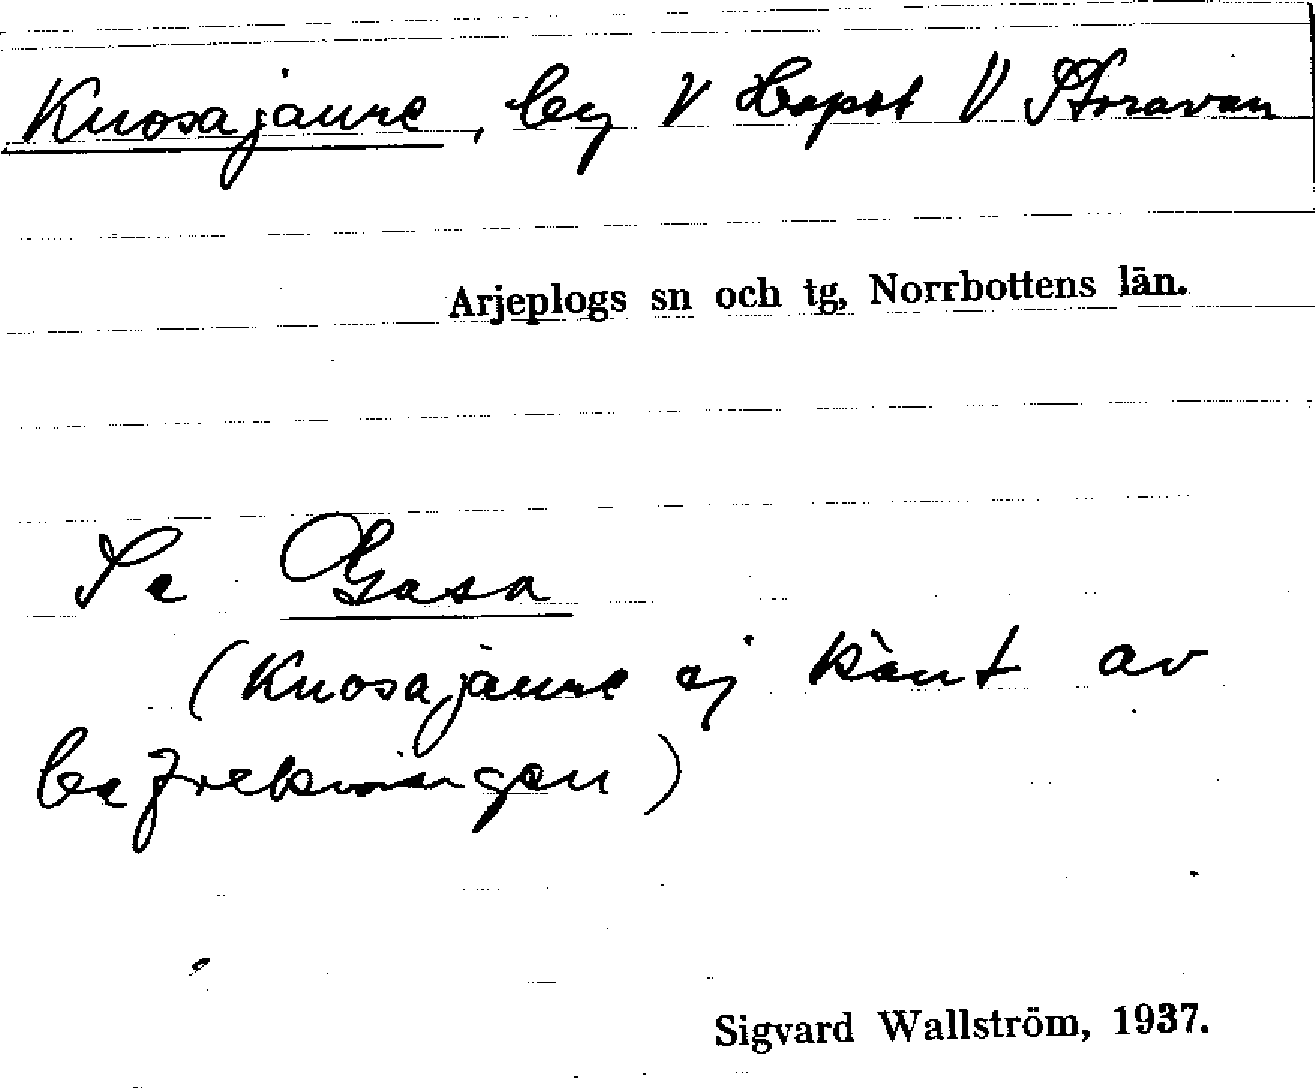 Kuosajaure, by V Hapst V Storavan
Arjeplogs sn och tg, Norrbottens län.
Se Gasa
(Kuosajaure ej känt av
befolkningen)
Sigvard Wallström, 1937.